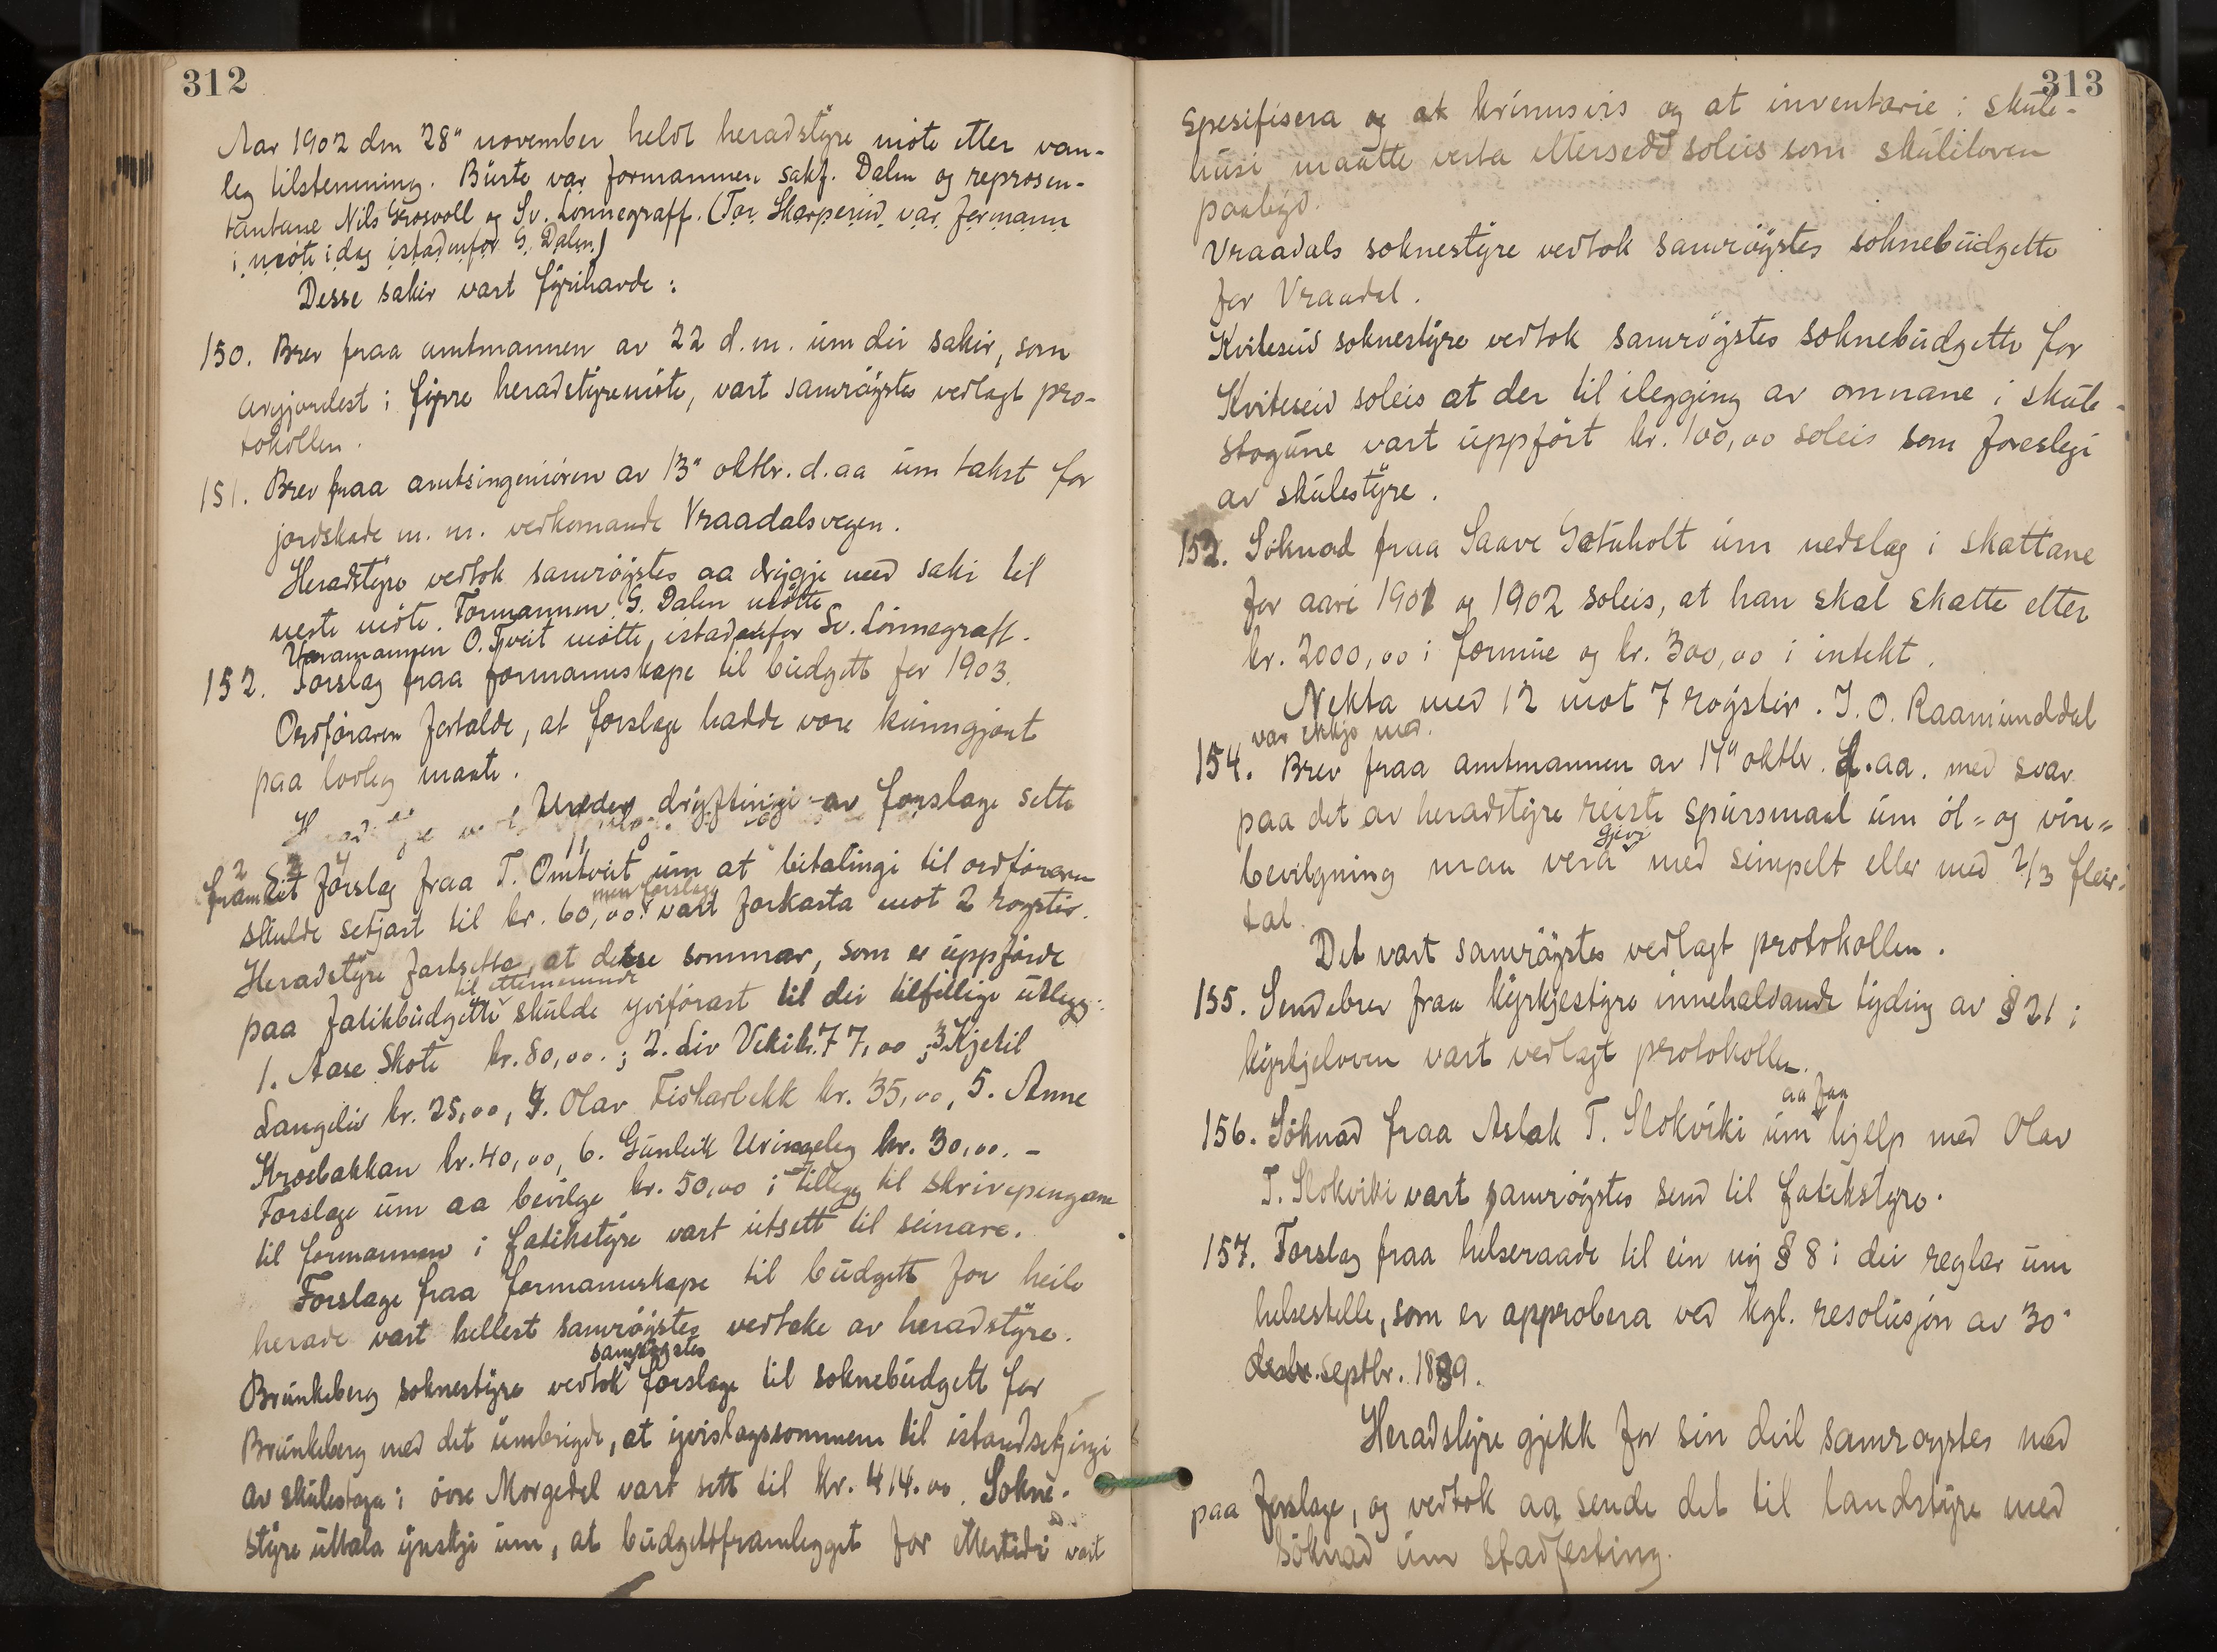 312
Aar 1902 den 28" november heldt heradstyre möte etter van-
leg tilstemning. Burte var formannen sakf. Dalen og represen-
tantane Nils Grosvoll og Sv. Lönnegraff. (Tor Skarperud var formann
i möte i dag istadenfor G. Dalen)
Desse sakir vart fyrihavde:
150. Brev fraa amtmannen av 22 d.m. um dei sakir, som
avgjordest i fyrre heradstyremöte, vart samröystes vedlagt pro-
tokollen.
151. Brev fraa amtsingeniören av 13" oktbr. d.aa um takst for
jordskade m.m. vedkomande Vraadalsvegen.
Heradstyre vedtok samröystes aa drygje med saki til
neste möte. Formannen G. Dalen mötte
Varamannen O. Tveit mötte, istadenfor Sv. Lönnegraff.
152. Forslag fraa formannskape til budgett for 1903.
Ordföraren fortalde, at forslage hadde vore kunngjort
paa lovleg maate.
Under dryftingi av forslage sette
2
framlet forslag fraa T. Omtveit um at bitalingi til ordföraren
skulde setjast til kr. 60,00. men forslage vart forkasta mot 2 röystir.
Heradstyre fastsette, at desse sommar, som er uppförde
paa fatikbudgette til etternemnde skulde yviförast til dei tilfellige utlegg:
1. Aase Skote kr. 80,00.; 2. Liv Veki kr. 77,00; 3. Kjetil
Langeliv kr. 25,00, 4. Olav Fiskarbekk kr. 35,00, 5. Anne
Krosbakkan kr. 40,00, 6. Gunleik Uringeleg kr. 30,00. –
Forslage um aa bevilge kr. 50,00 i tillegg til skrivepengane
til formannen i fatikstyre vart utsett til seinare.
Forslage fraa formannskape til budgett for heile
herade vart hellest samröystes vedteke av heradstyre.
Brunkeberg soknestyre vedtok samröystes forslage til soknebudgett for
Brunkeberg med det umbrigde, at yvislagssommen til istandsetjingi
av skulestoga i övre Morgedal vart sett til kr. 414.00. Sokne-
styre uttala ynskje um, at budgettframlegget for ettertidi vart
313
spesifisera og at krinsvis og at inventarie i skule-
husi maatte verta ettersedd soleis som skuleloven
paabyd.
Vraadals soknestyre vedtok samröystes soknebudgette
for Vraadal.
Kviteseid soknestyre vedtok samröystes soknebudgette for
Kviteseid soleis at der til ilegging av omnane i skule-
stogune vart uppfört kr. 100,00 soleis som foreslegi
av skulestyre.
152. Söknad fraa Saave Gotuholt um nedslag i skattane
for aari 1901 og 1902 soleis, at han skal skatte etter
kr. 2000,00 i formue og kr. 300,00 i intekt.
Nekta med 12 mot 7 röystir. J. O. Raamunddal
var ikkje med.
154. Brev fraa amtmannen av 14" oktbr. d.aa. med svar
paa det av heradstyre reiste spursmaal um öl- og vin-
bevilgning maa vera givi med simpelt eller med 2/3 fleir-
tal.
Det vart samröystes vedlagt protokollen.
155. Sendebrev fraa kyrkjestyre innehaldande tyding av § 21 i
kyrkjeloven vart vedlagt protokollen.
156. Söknad fraa Aslak T. Slokviki um aa faa hjelp med Olav
T. Slokviki vart samröystes send til fatikstyre.
157. Forslag fraa helseraade til ein ny § 8 i dei reglar um
helsestelle, som er approbera ved kgl. resolusjon av 30"
septbr. 1889.
Heradstyre gjekk for sin deil samröystes med
paa forslage, og vedtok aa sende det til landstyre med
söknad um stadfesting.